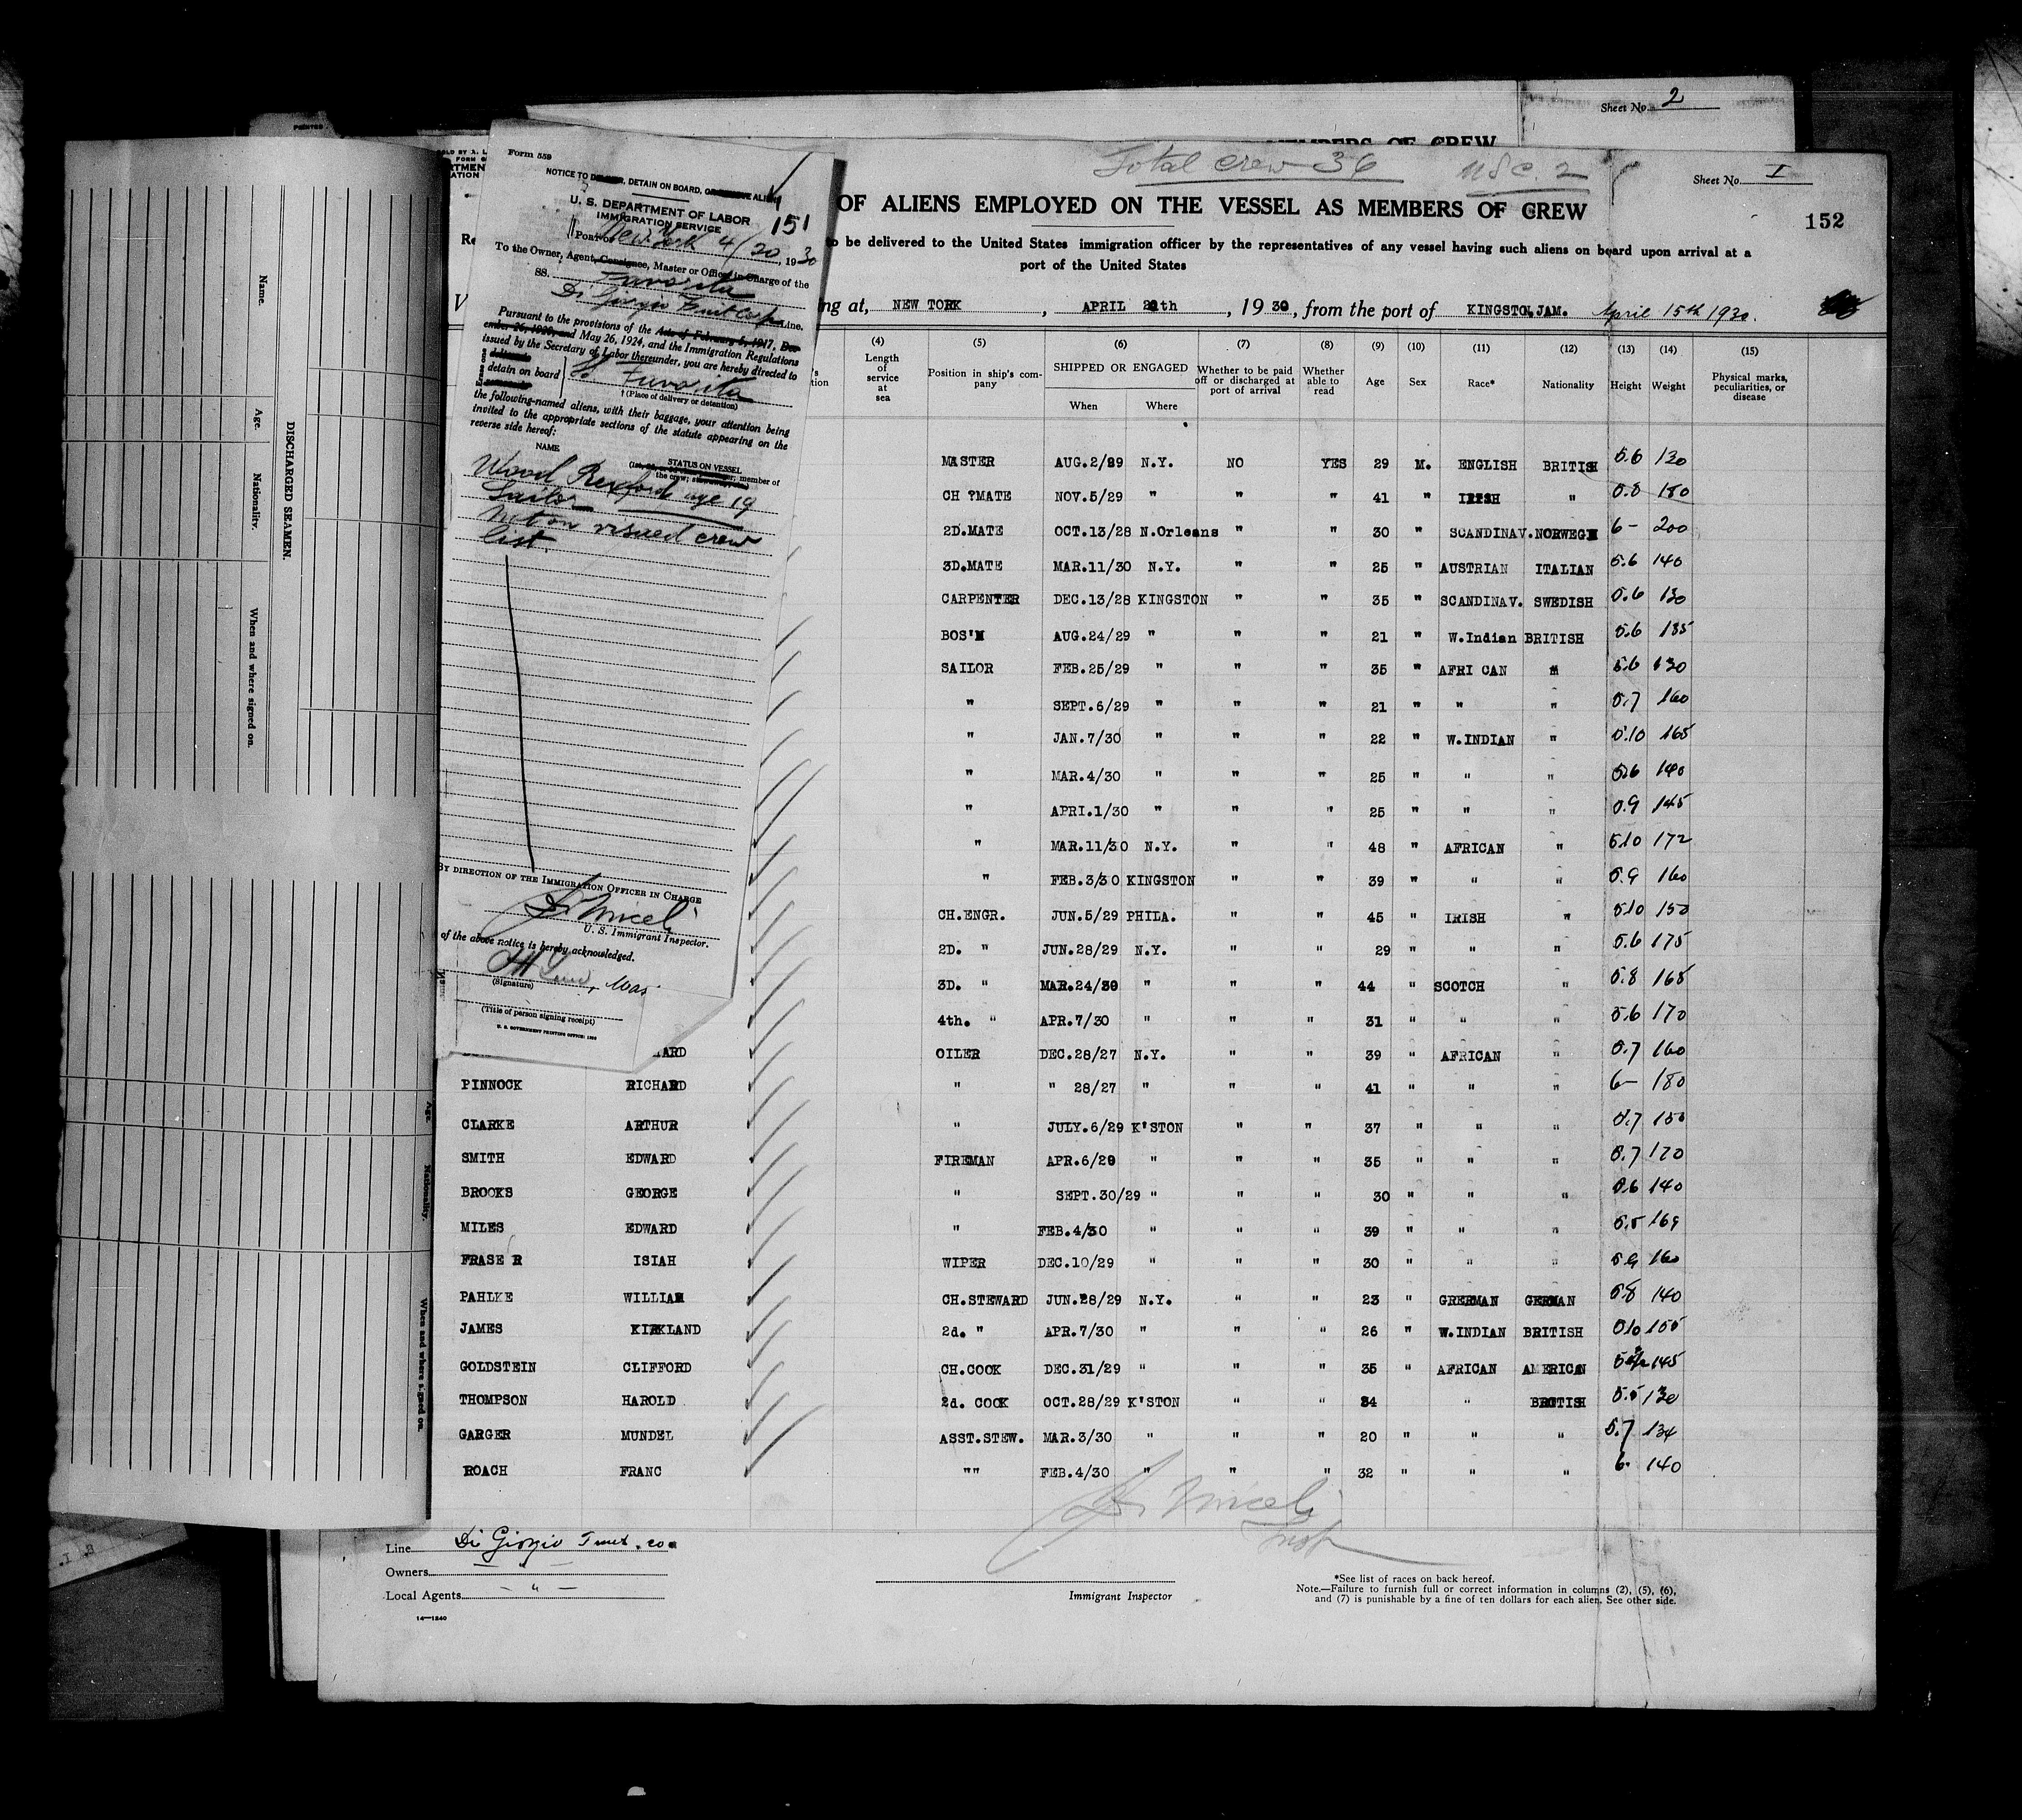 Sheet No. 2
MEMBERS OF CREW
Total Crew 36
U.S.C. 2
Sheet No. I
OF ALIENS EMPLOYED ON THE VESSEL AS MEMBERS OF CREW
152
to be delivered to the United States immigration officer by the representatives of any vessel having such aliens on board upon arrival at a
port of the United States
ng at, NEW YORK, APRIL 20th, 1930, from the port of KINGSTON, JAM. April 15th 1930.
Form 559
NOTICE TO DELIVER, DETAIN ON BOARD, OR REMOVE ALIEN
U. S. DEPARTMENT OF LABOR
IMMIGRATION SERVICE
151
Port of New York 4/20, 1930
To the Owner, Agent, Consignee, Master or Officer in Charge of the
SS. Favorita
Di Giorgio Fruit Corp Line.
Pursuant to the provisions of the Acts of February 5, 1917, Dec-
ember 26, 1920, and May 26, 1924, and the Immigration Regulations
issued by the Secretary of Labor thereunder, you are hereby directed to
detain on board SS Favorita
† (Place of delivery or detention)
the following-named aliens, with their baggage, your attention being
invited to the appropriate sections of the statute appearing on the
reverse side hereof:
NAME
STATUS ON VESSEL
the crew; member of
Wood Rexford age 19
Sailor
Not on visaed crew
list.
BY DIRECTION OF THE IMMIGRATION OFFICER IN CHARGE
U. S. Immigrant Inspector.
of the above notice is hereby acknowledged.
(Signature)
(Title of person signing receipt)
U. S. GOVERNMENT PRINTING OFFICE
DISCHARGED SEAMEN.
Name.
Age.
Nationality.
When and where signed on.
Age.
Nationality.
When and where signed on.
(4) (5) (6) (7) (8) (9) (10) (11) (12) (13) (14) (15)
Length of service at sea
Position in ship's company
SHIPPED OR ENGAGED
When Where
Whether to be paid off or discharged at port of arrival
Whether able to read
Age Sex Race* Nationality Height Weight
Physical marks, peculiarities, or disease
MASTER AUG.2/29 N.Y. NO YES 29 M. ENGLISH BRITISH 5.6 130
CH MATE NOV.5/29 " " " 41 " IRISH " 5.8 180
2D.MATE OCT.13/28 N.Orleans " " 30 " SCANDINAV. NORWEGN 6- 200
3D.MATE MAR.11/30 N.Y. " " 25 " AUSTRIAN ITALIAN 5.6 140
CARPENTER DEC.13/28 KINGSTON " " 35 " SCANDINAV. SWEDISH 5.6 130
BOS'N AUG.24/29 " " " 21 " W.Indian BRITISH 5.6 135
SAILOR FEB.25/29 " " " 35 " AFRI CAN " 5.6 130
" SEPT.6/29 " " " 21 " " " 5.7 160
" JAN.7/30 " " " 22 " W.INDIAN " 5.10 165
" MAR.4/30 " " " 25 " " " 5.6 140
" APRI.1/30 " " " 25 " " " 5.9 145
" MAR.11/30 N.Y. " " 48 " AFRICAN " 5.10 172
" FEB.3/30 KINGSTON " " 39 " " " 5.9 160
CH.ENGR. JUN.5/29 PHILA. " " 45 " IRISH " 5.10 150
2D. " JUN.28/29 N.Y. " " 29 " " " 5.6 175
3D. " MAR.24/30 " " " 44 " SCOTCH " 5.8 165
4th. " APR.7/30 " " " 31 " " " 5.6 170
ARD OILER DEC.28/27 N.Y. " " 39 " AFRICAN " 5.7 160
PINNOCK RICHARD " " 28/27 " " " 41 " " " 6- 180
CLARKE ARTHUR " JULY.6/29 K'STON " " 37 " " " 5.7 150
SMITH EDWARD FIREMAN APR.6/29 " " " 35 " " " 5.7 170
BROOKS GEORGE " SEPT.30/29 " " " 30 " " " 5.6 140
MILES EDWARD " FEB.4/30 " " " 39 " " " 5.5 169
FRASE R ISIAH WIPER DEC.10/29 " " " 30 " " " 5.9 160
PAHLKE WILLIAM CH.STEWARD JUN.28/29 N.Y. " " 23 " GRERMAN GERMAN 5.8 140
JAMES KIRKLAND 2d. " APR.7/30 " " " 26 " W.INDIAN BRITISH 5.10 155
GOLDSTEIN CLIFFORD CH.COOK DEC.31/29 " " " 35 " AFRICAN AMERICAN 145
THOMPSON HAROLD 2d. COOK OCT.28/29 K'STON " " 34 " " BRITISH 5.5 130
GARGER MUNDEL ASST.STEW. MAR.3/30 " " " 20 " " " 5.7 134
ROACH FRANC "" FEB.4/30 " " " 32 " " " 6. 140
Line Di Giorgio Fruit. co.
Owners — " —
Local Agents — " —
14—1240
Insp
Immigrant Inspector
*See list of races on back hereof.
Note.—Failure to furnish full or correct information in columns (2), (5), (6),
and (7) is punishable by a fine of ten dollars for each alien. See other side.